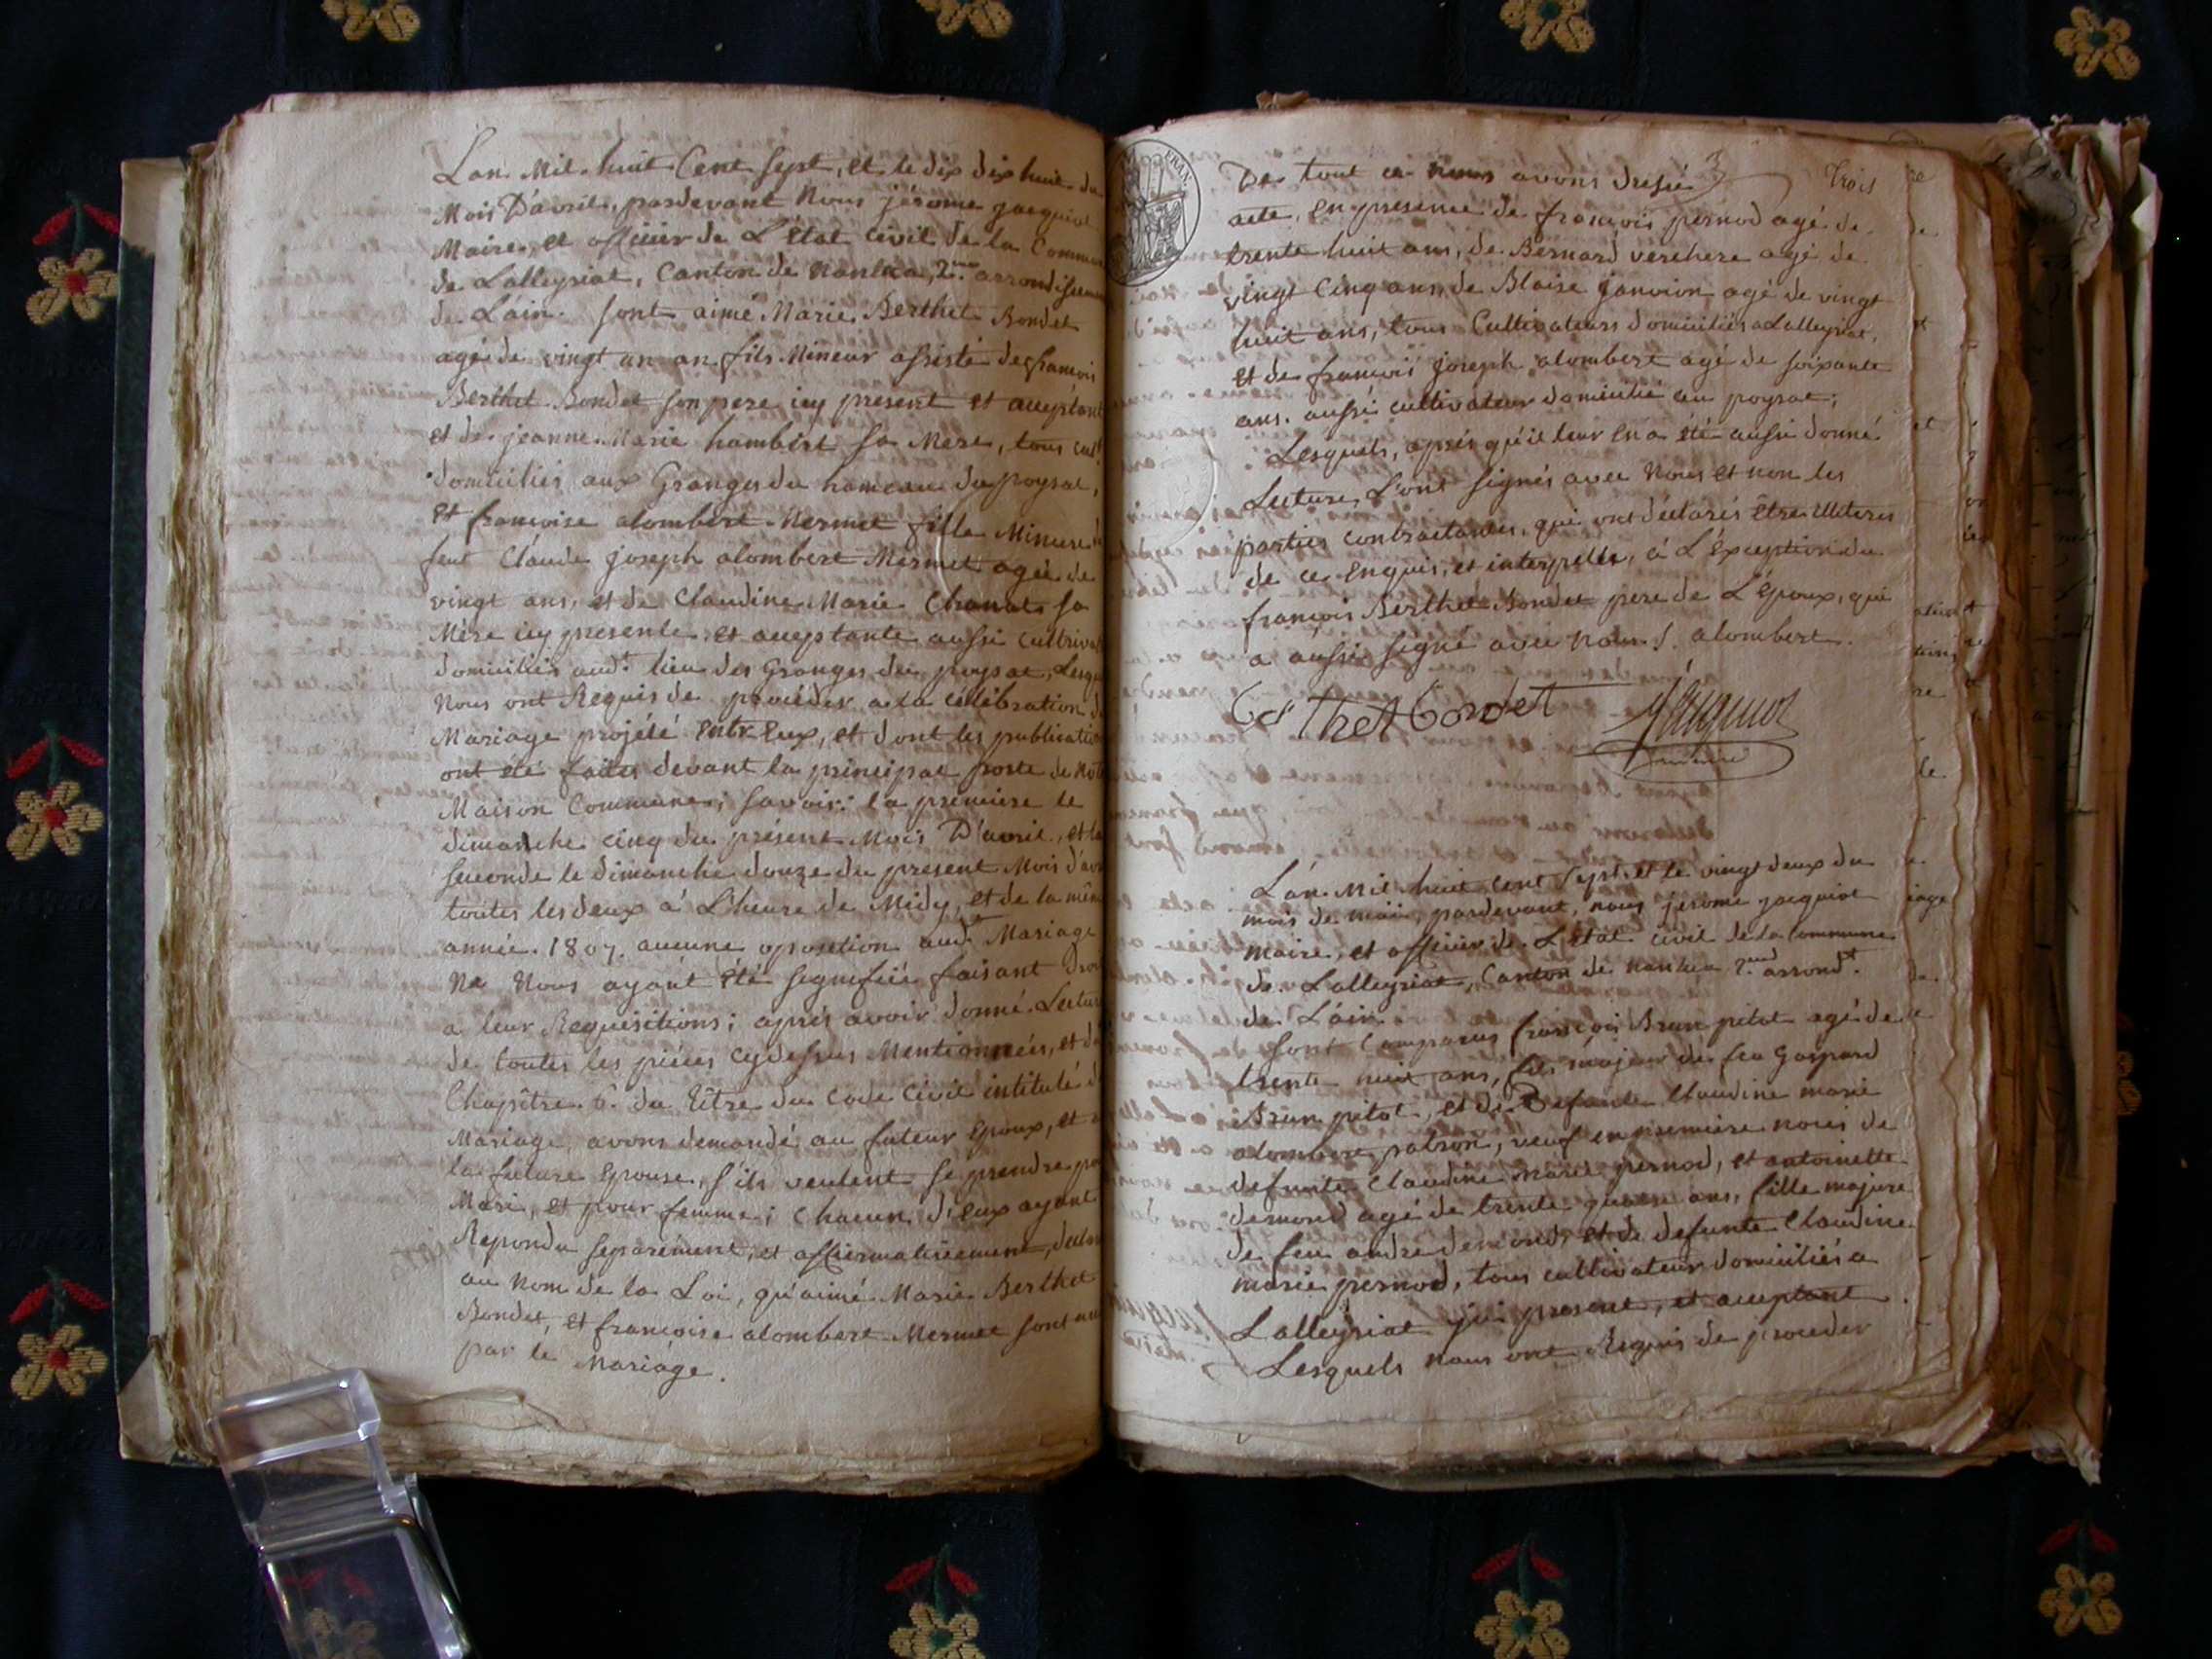 Lan Mil huit Cent sept, et le dix dix huit du
Mois D'avril, pardevant Nous jérome jacquiot
Maire, et officier de L'Etat civil de la Commune
de Lalleyriat, Canton de Nantua, 2.me arrondissem
de L'ain. sont aimé Marie Berthet Bondet
agé de vingt un an fils Mineur assisté de francois
Berthet Bondet son pere icy present et acceptant
et de jeanne Marie humbert sa Mere, tous cult.
domiciliés aux Granges du hameau du poysat,
et francoise alombert Mermet fille Mineure de
feut Claude joseph alombert Mermet agée de
vingt ans, et de Claudine Marie Chanat sa
Mére icy presente, et acceptante aussi Cultivat
domiciliés aud.t lieu des Granges du poysat, Lesqu
Nous ont Requis de procéder a la célébration du
Mariage projété entr'Eux, et dont les publications
ont été faites devant la principal porte de Not
Maison Commune; savoir: la premiere le
dimanche cinq du présent Mois D'avril, et la
seconde le dimanche douze du present Mois d'avr
toutes les deux a L'heure de Midy, et de la mêm
année 1807. aucune oposition aud.t Mariage
Ne Nous ayant été segnifiée faisant Droi
a leur Requisitions; aprés avoir donné Lectur
de toutes les piéces cydessus Mentionnées, et du
Chapître 6. du Titre du Code Civil intitulé du
Mariage, avons demandé au futeur Epoux, et a
la future Epouse, s'ils veulent se prendre pour
Mari, et pour femme; Chacun d'eux ayant
Repondu separément, et affiermativement, declar
au Nom de la Loi, qu'aimé Marie Berthet
Bondet, et francoise alombert Mermet sont unis
par le Mariage.
De tout ce nous avons dressé 3 Trois
acte, en presence de francois pernod agé de
trente huit ans, de Bernard verchere agé de
vingt Cinq ans, de Blaise Janvion agé de vingt
huit ans, tous Cultivateurs domiciliés a Lalleyriat,
et de francois joseph alombert agé de soixante
ans. aussi cultivateur domicilié au poysat;
Lesquels, aprés qu'il leur en a été aussi donné
Lecture, L'ont signés avec Nous et non les
parties contractantes, qui ont déclarés être illiteres
de ce enquis, et interpellés, à L'exception du
francois Berthet Bondet pere de L'Epoux, qui
a aussi signé avec Nous J. alombert.
Berthet Bondet Jacquiot
maire
L'an Mil huit cent sept et le vingt deux du
mois de mai, pardevant, nous jerome jacquiot
maire, et officier de L'état civil de la commune
de Lalleyriat, Canton de nantua 2.me arrond.t
de L'ain.
sont Comparus francois Brun pitot agé de
trente huit ans, fils majeur de feu Gaspard
Brun pitot, et de Defunte Claudine marie
alombert patron, veuf en premiere noces de
defunte Claudine marie pernod, et antoinette
demond agé de trente quatre ans, fille majure
de feu andre demond, et de defunte Claudine
marie pernod, tous cultivateur domiciliés a
Lalleyriat ici present, et acceptant
Lesquels nous ont Requis de proceder